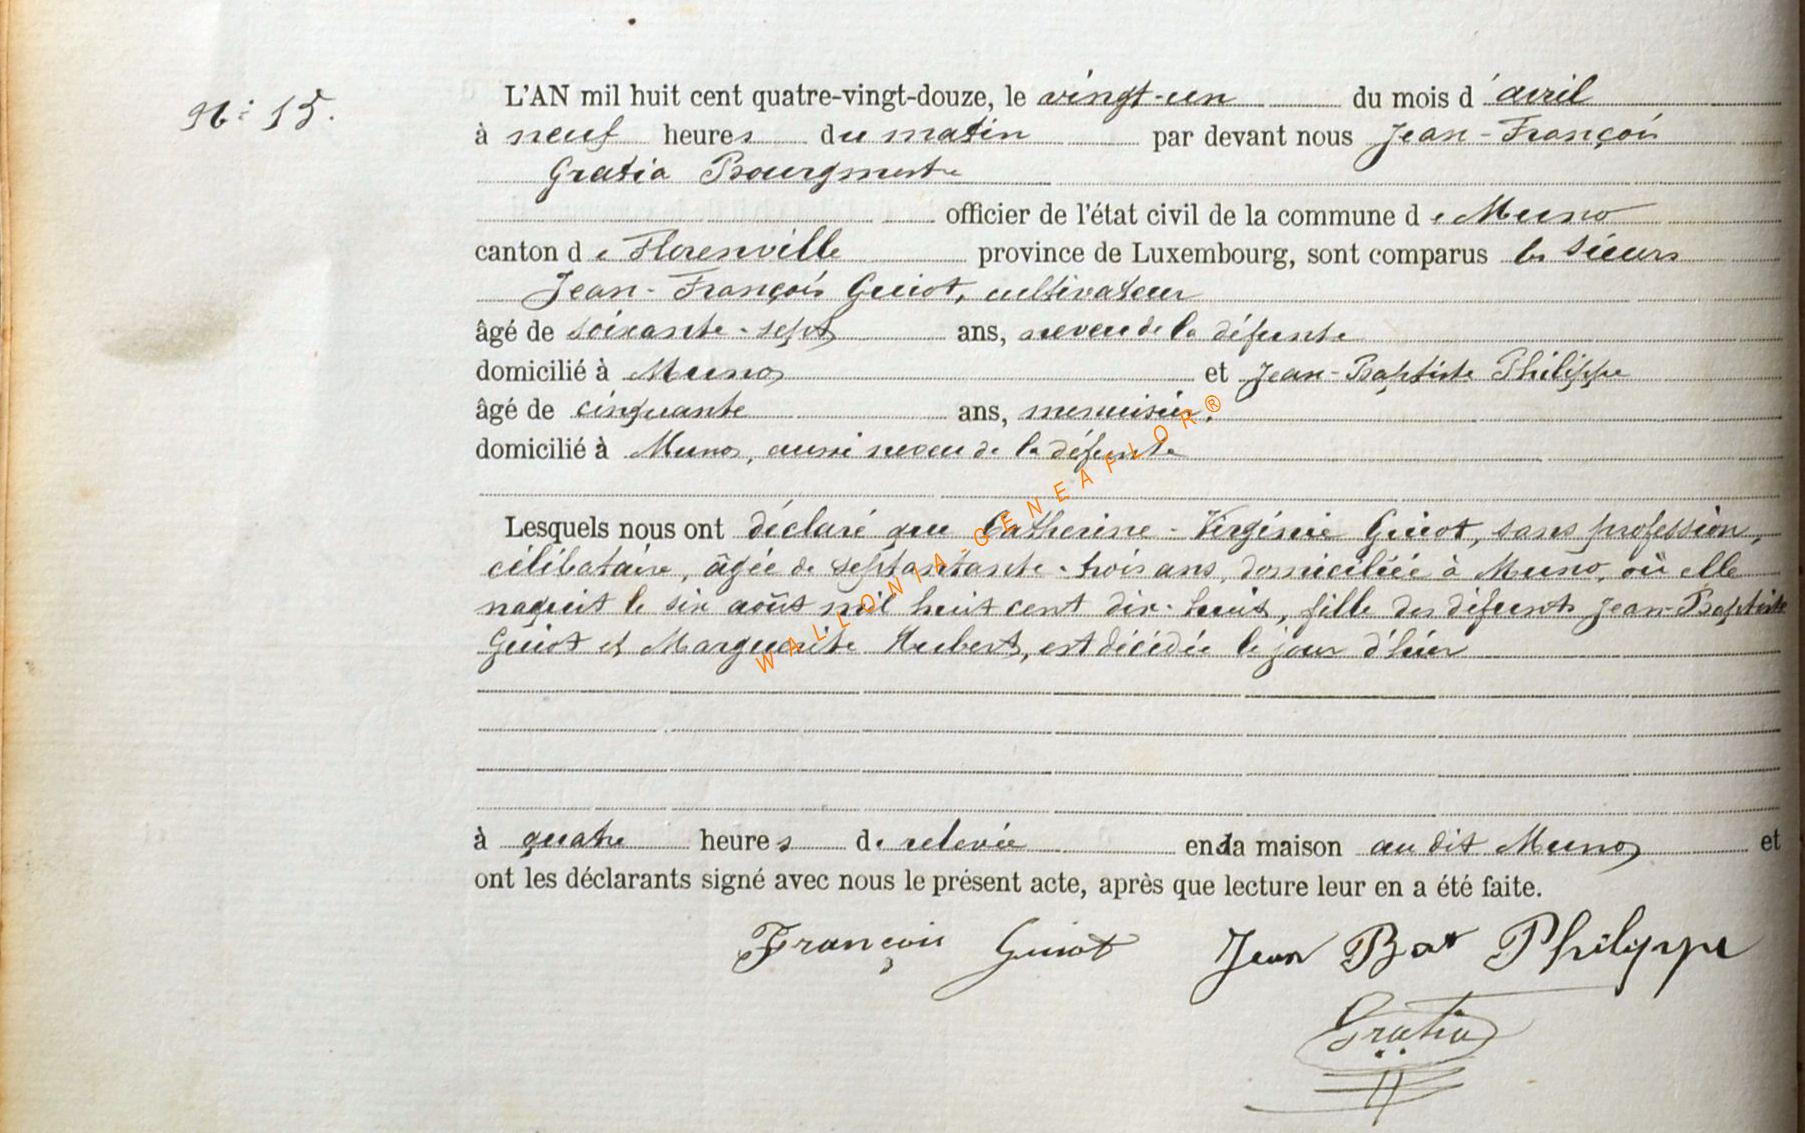 N° 15.
L'AN mil huit cent quatre-vingt-douze, le vingt-un du mois d'avril
à neuf heures du matin par devant nous Jean-François
Gratia Bourgmestre
officier de l'état civil de la commune de Muno
canton de Florenville province de Luxembourg, sont comparus les sieurs
Jean-François Guiot, cultivateur
âgé de soixante-sept ans, neveu de la défunte
domicilié à Muno et Jean-Baptiste Philippe
âgé de cinquante ans, menuisier,
domicilié à Muno, aussi neveu de la défunte
Lesquels nous ont déclaré que Catherine-Virginie Guiot, sans profession,
célibataire, âgée de septantante-trois ans, domiciliée à Muno, où elle
naquit le six août mil huit cent dix-huit, fille des défunts Jean-Baptiste
Guiot et Marguerite Hubert, est décédée le jour d'hier
à quatre heures de relevée en sa maison au dit Muno et
ont les déclarants signé avec nous le présent acte, après que lecture leur en a été faite.
François Guiot Jean Bat Philippe
Gratia
WALLONIA-GENEAFLOR®